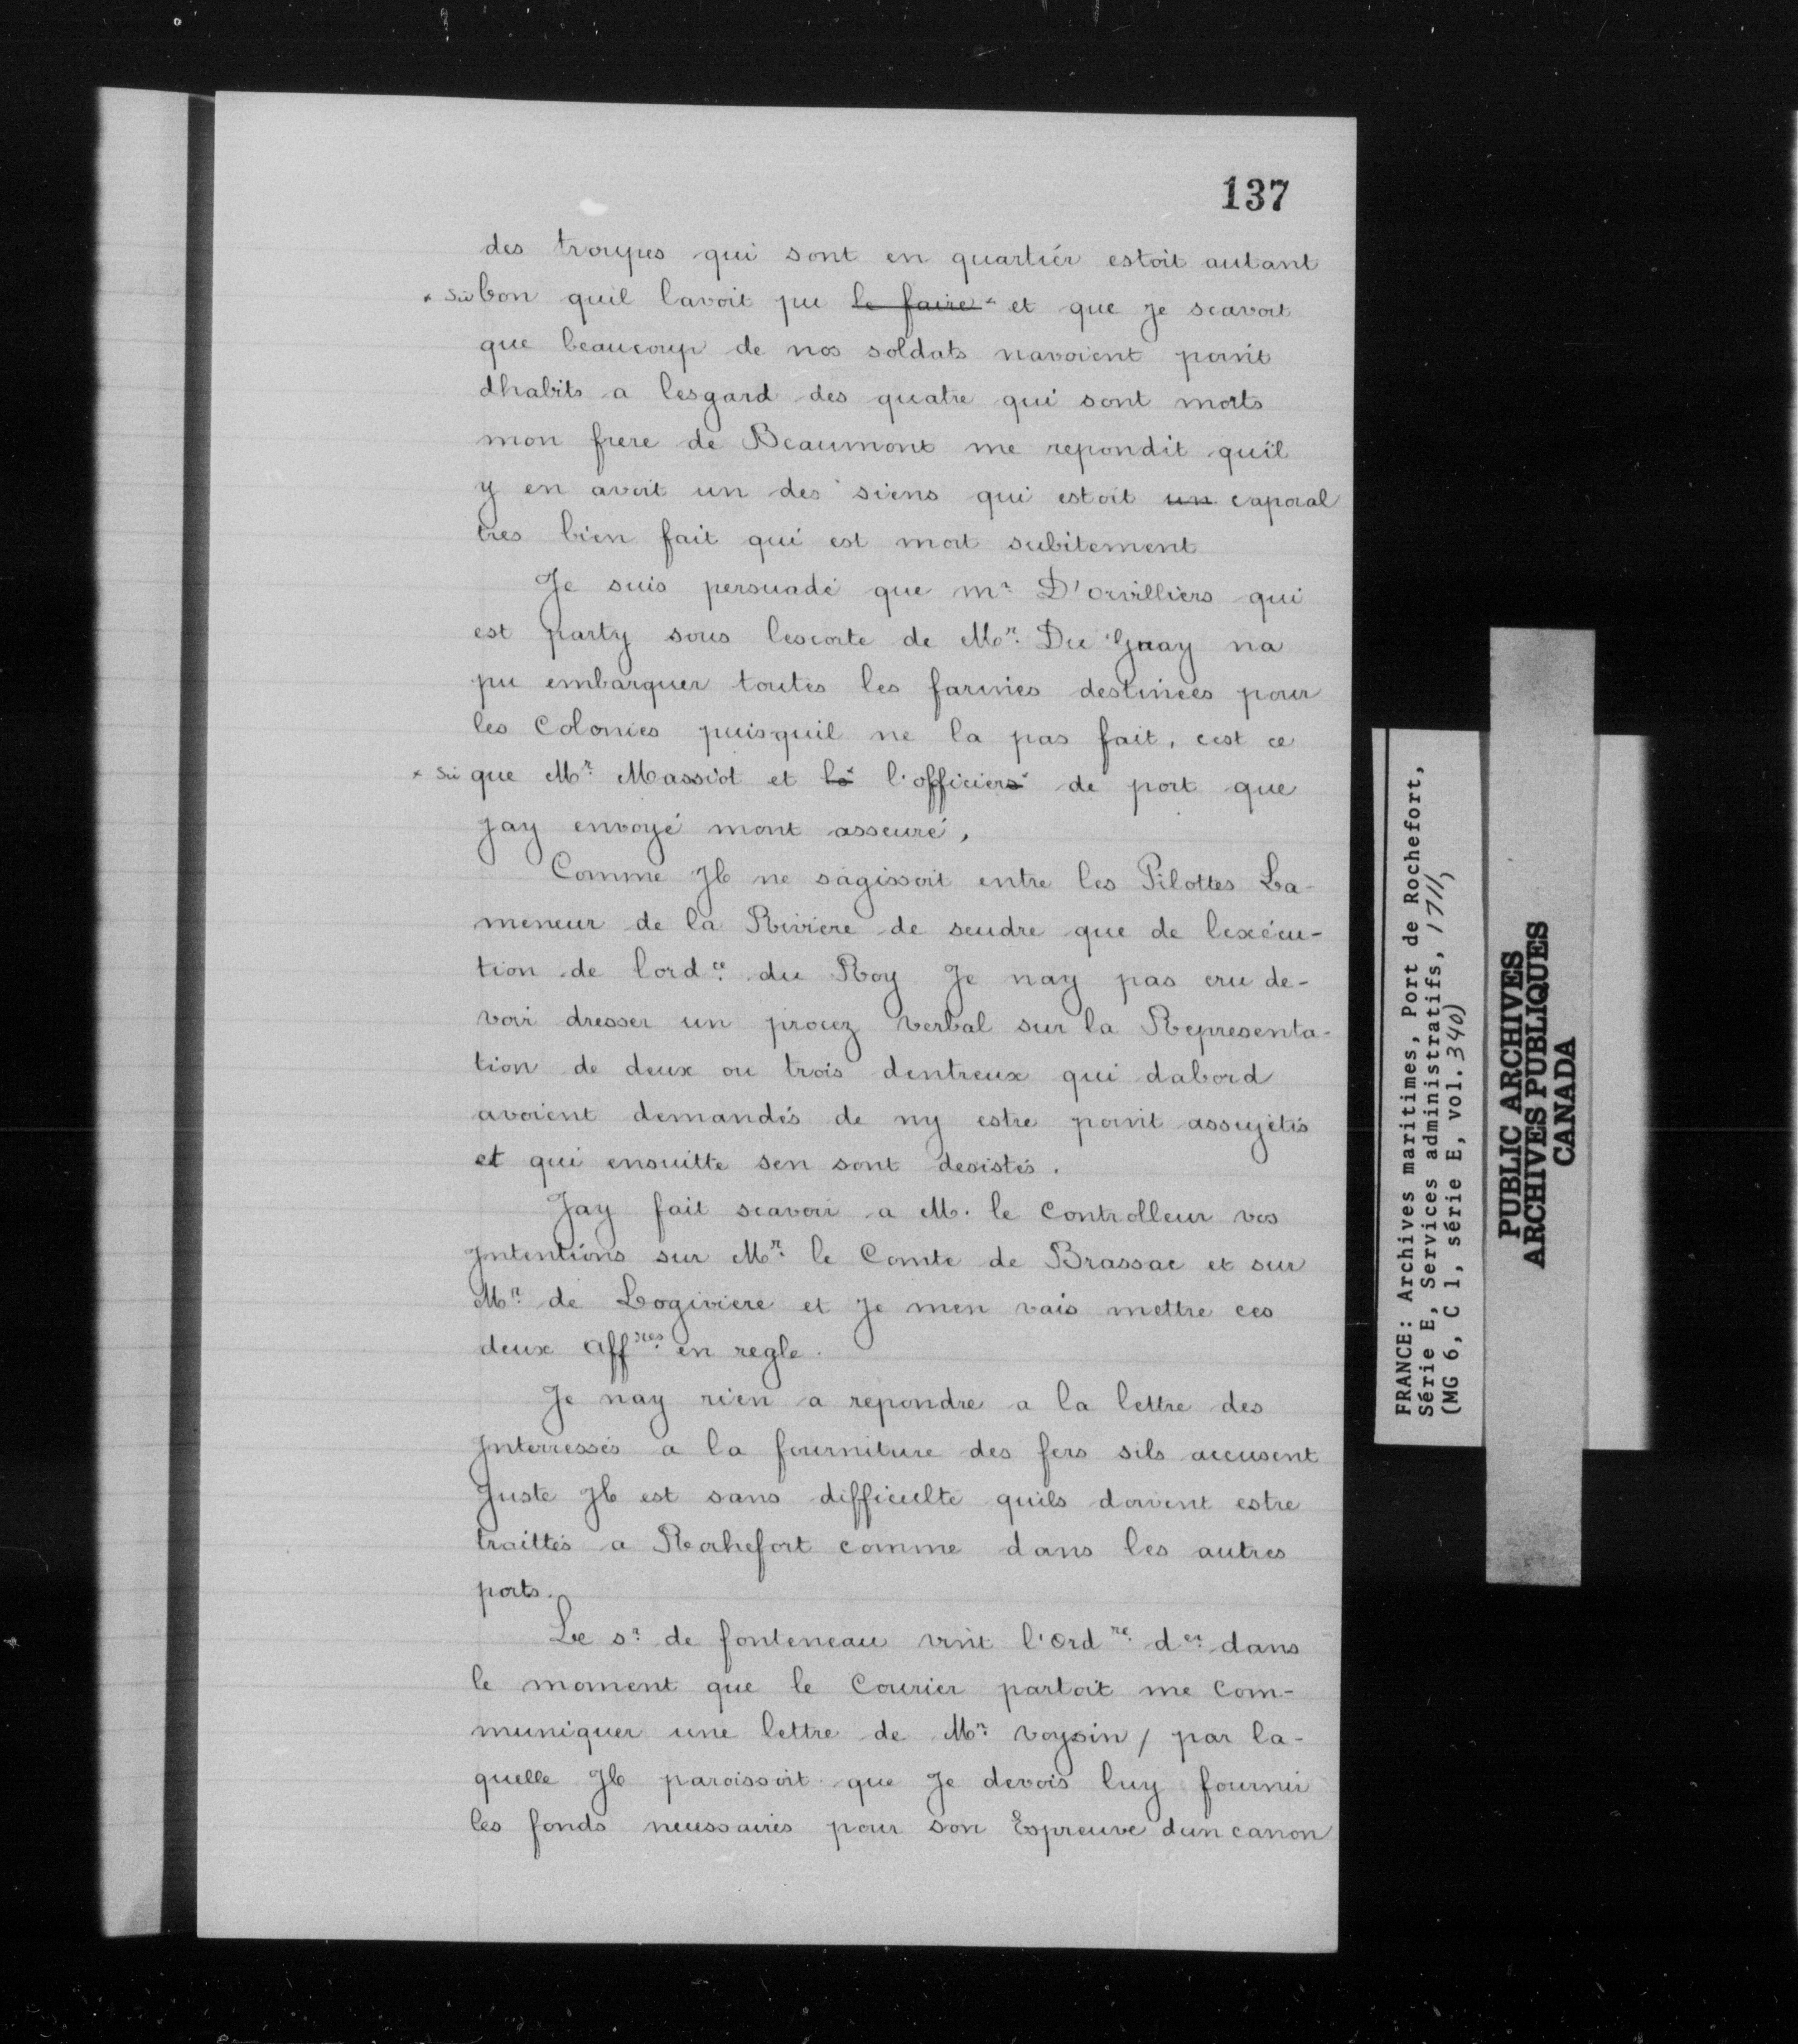 137
des troupes qui sont en quartiér estoit autant
* Sic bon quil lavoit pu le faire * et que je scavoit
que beaucoup de nos soldats navoient point
dhabits a lesgard des quatre qui sont morts
mon frere de Beaumont me repondit quil
y en avoit un des siens qui estoit un caporal
tres bien fait qui est mort subitement
Je suis persuadé que mr. D'orvilliers qui
est party sous lescorte de Mr. Du Guay na
pu embarquer toutes les farines destinées pour
les Colonies puisquil ne la pas fait, cest ce
* Sic que Mr. Massiot et l'officiers de port que
jay envoyé mont asseuré,
Comme Il ne sagissoit entre les Pilottes La-
meneur de la Riviere de seudre que de lexécu-
tion de lordce. du Roy Je nay pas cru de-
voir dresser un procez verbal sur la Representa-
tion de deux ou trois dentreux qui dabord
avoient demandés de ny estre point assujétis
et qui ensuitte sen sont desistés.
Jay fait scavoir a M. le Controlleur vos
Intentions sur Mr. le Comte de Brassac et sur
Mr. de Logiviere et Je men vais mettre ces
deux affres. en regle.
Je nay rien a repondre a la lettre des
Interressés a la fourniture des fers sils accusent
Juste Il est sans difficulté quils doivent estre
traittés a Rochefort comme dans les autres
ports.
Le sr. de fonteneau vint l'ordre. der. dans
le moment que le Courier partoit me com-
muniquer une lettre de Mr. voysin / par la-
quelle Il paroissoit que Je devois luy fournir
les fonds necessaires pour son Espreuve dun canon
FRANCE: Archives maritimes, Port de Rochefort,
Série E, Services administratifs, 1711,
(MG 6, C 1, série E, vol. 340)
PUBLIC ARCHIVES
ARCHIVES PUBLIQUES
CANADA